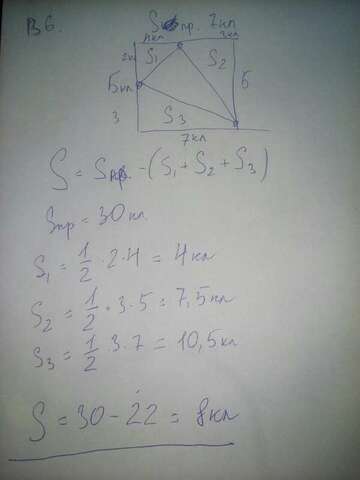 В6.
Sпр. 7кл
4кл 3кл
2кл S₁ S₂
5кл 5
3 S₃
7кл
S = Sпр. - (S₁ + S₂ + S₃)
Sпр = 30 кл.
S₁ = 1/2 · 2 · 4 = 4 кл
S₂ = 1/2 · 3 · 5 = 7,5 кл
S₃ = 1/2 · 3 · 7 = 10,5 кл
S = 30 - 22 = 8 кл